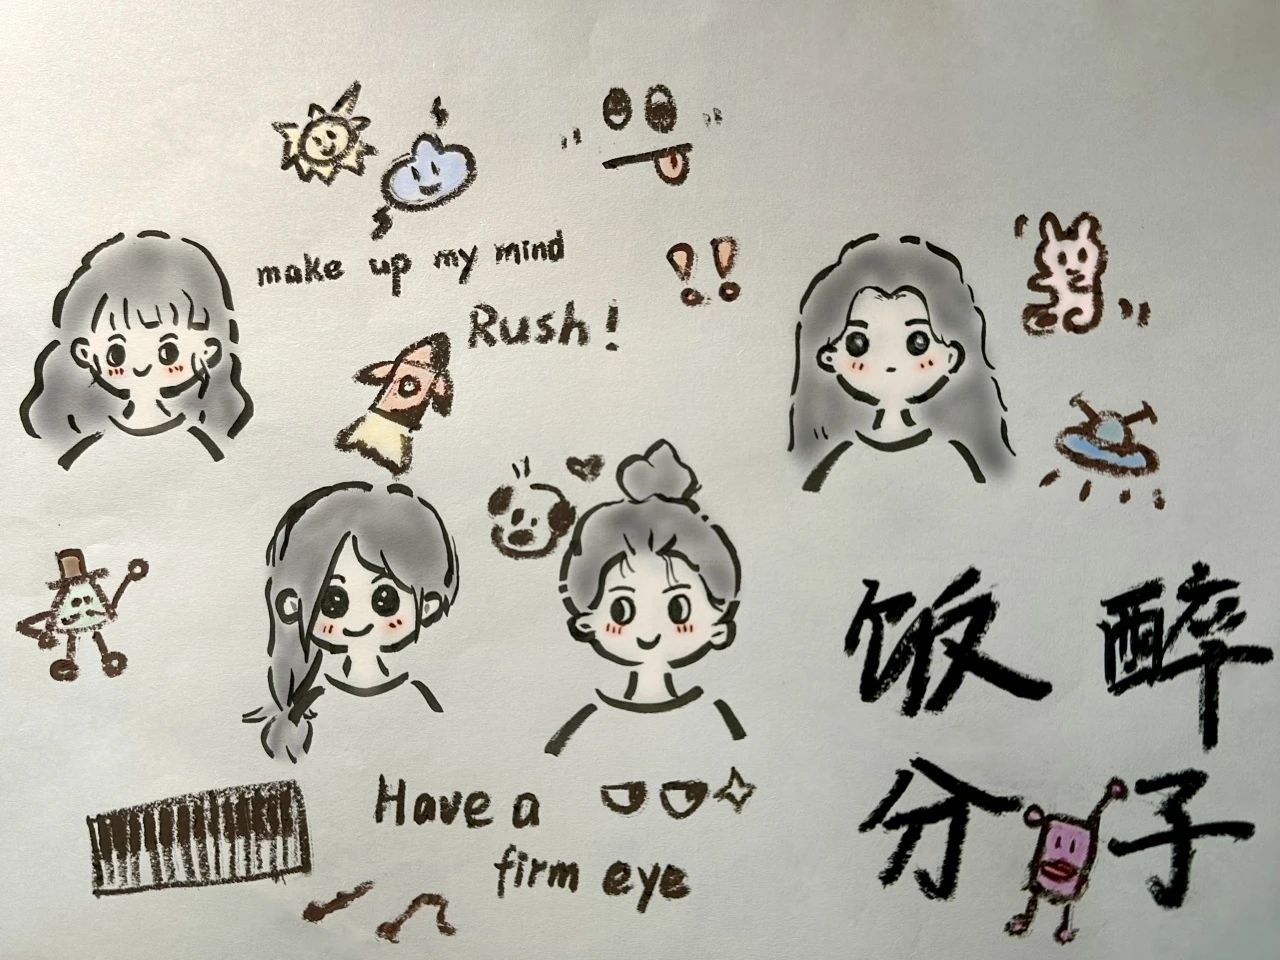 make up my mind
Rush!
!!
饭醉
分子
Have a
firm eye